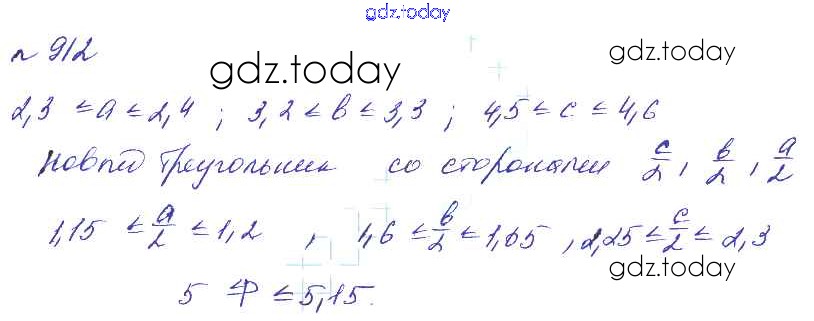 gdz.today
n 912
gdz.today
gdz.today
2,3 ≤ a ≤ 2,4 ; 3,2 ≤ b ≤ 3,3 ; 4,5 ≤ c ≤ 4,6
Новый треугольник со сторонами c/2, b/2, a/2
1,15 ≤ a/2 ≤ 1,2 , 1,6 ≤ b/2 ≤ 1,65 , 2,25 ≤ c/2 ≤ 2,3
5 ≤ P ≤ 5,15.
gdz.today
gdz.today